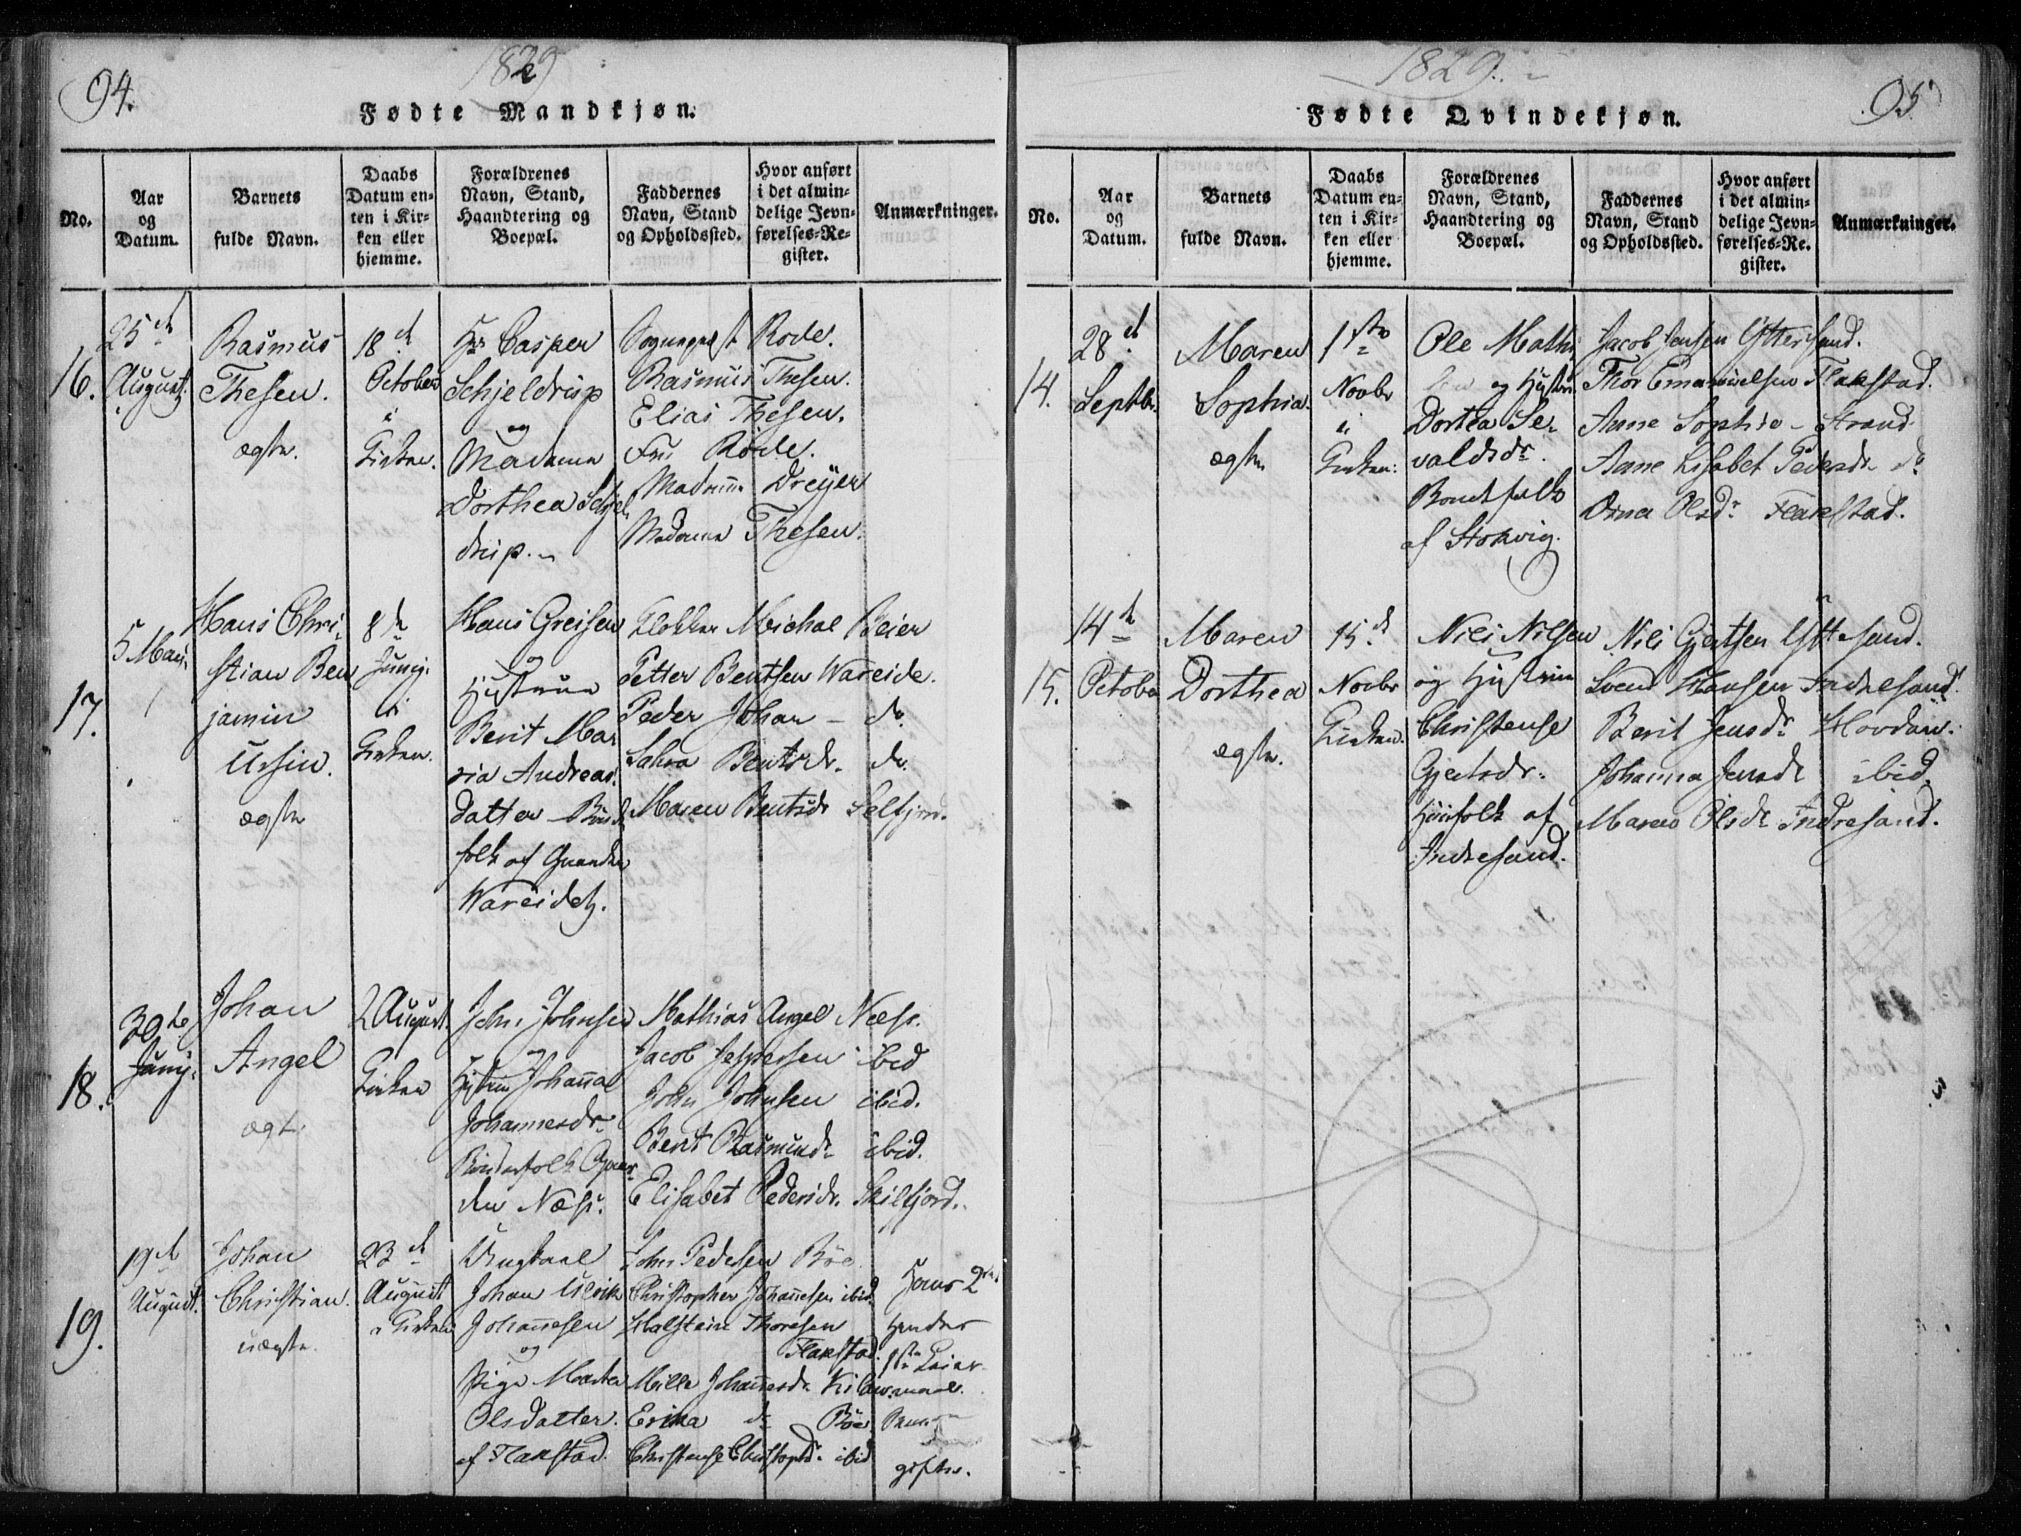 94.
1829
Fødte Mandkjøn.
No.
Aar
og
Datum.
Barnets
fulde Navn.
Daabs
Datum en-
ten i Kir-
ken eller
hjemme.
Forældrenes
Navn, Stand,
Haandtering og
Boepæl.
Faddernes
Navn, Stand
og Opholdssted.
Hvor anført
i det almin-
delige Jevn-
førelses-Re-
gister.
Anmærkninger.
16.
25de
August
Rasmus
Thesen.
ægte.
18de
October
i
Kirken.
Hr Casper
Schjeldrup
og
Madame
Dorthea Schjel
drup.
Sogneprest Rode.
Rasmus Thesen.
Elias Thesen.
Fru Rode.
Madame Dreyer
Madame Thesen.
17.
5 Mai
Hans Chri-
stian Ben
jamin
Ursin.
ægte
8de
Junij
i
Kirken.
Hans Greisen
og
Hustrue
Berit Ma
ria Andreas
datter
folk af
Wareidet.
Klokker Michal Beier
Petter Bentsen Wareide.
Peder Johan - do
Sahra Bentsdr. do.
Maren Bentsdr Selfjord.
18.
30te
Junij.
Johan
Angel
ægte.
2 August
Kirken
John Johnsen
og
Hustrue Johanna
Johannesdr
Næss.
Mathias Angel Næss.
Jacob Jespersen ibid
John Johnsen ibid.
Berit Rasmusdr ibid.
Elisabet Pedersdr. Skilfjord.
19.
19de
August.
Johan
Christian.
uægte.
23de
August
i Kirken
Ungkarl
Johan Ulrik
Johannesen
og
Pige Martha
Olsdatter.
af Flakstad.
John Pedersen Böe
Christopher Johannesen ibid.
Halstein Thoresen
Flakstad.
Mille Johannesdr
Erika dr Böe
Christense Christophdr. ibid
Hans 2det
Hendes
1ste Leier-
maal.
gifte.
1829.
95
Fødte Qvindekjøn.
No.
Aar
og
Datum.
Barnets
fulde Navn.
Daabs
Datum en-
ten i Kir-
ken eller
hjemme.
Forældrenes
Navn, Stand,
Haandtering og
Boepæl.
Faddernes
Navn, Stand
og Opholdssted.
Hvor anført
i det almin-
delige Jevn-
førelses-Re-
gister.
Anmærkninger.
14.
28de
Septbr.
Maren
Sophia.
ægte
1ste
Novbr
i
Kirken.
Ole Mathi
og Hustru
Dorthea Se-
valdsdr.
Bondefolk
af Storvig.
Jacob Jensen Yttersand.
Thor Emanuelsen Flakstad.
Anne Sophie - Strand
Anne Lisabet Pedersdr do
Olsdr Flakstad.
15.
14de
October
Maren
Dorthea
ægte.
15de
Novbr
Kirken.
Nils Nilsen
og Hustrue
Christense
Gjertsdr.
Huusfolk af
Indresand.
Nils Gjertsen Yttersand.
Svend Hansen Indresand.
Berit Jensdr
Johanna Jensdr ibid
Maren Olsdr Indresand.